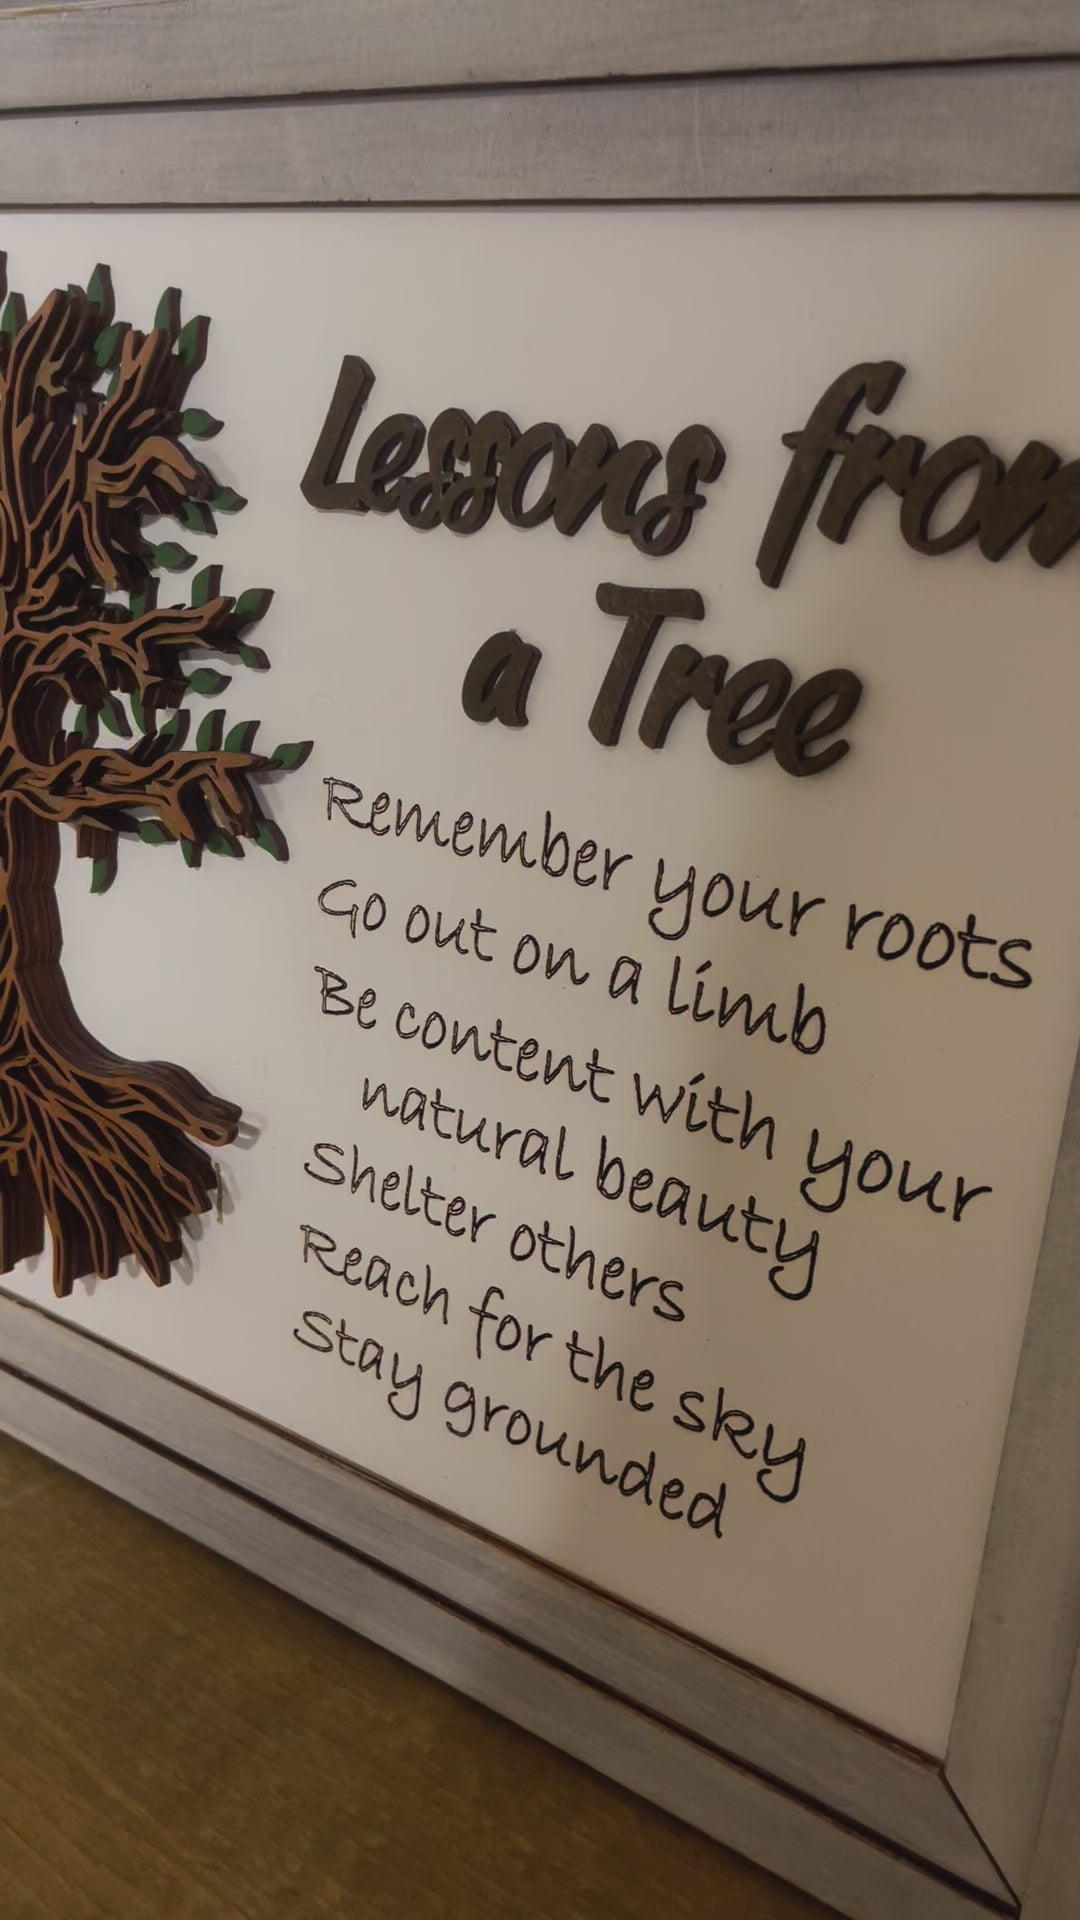 Lessons from
a Tree
Remember your roots
Go out on a limb
Be content with your
natural beauty
Shelter others
Reach for the sky
Stay grounded